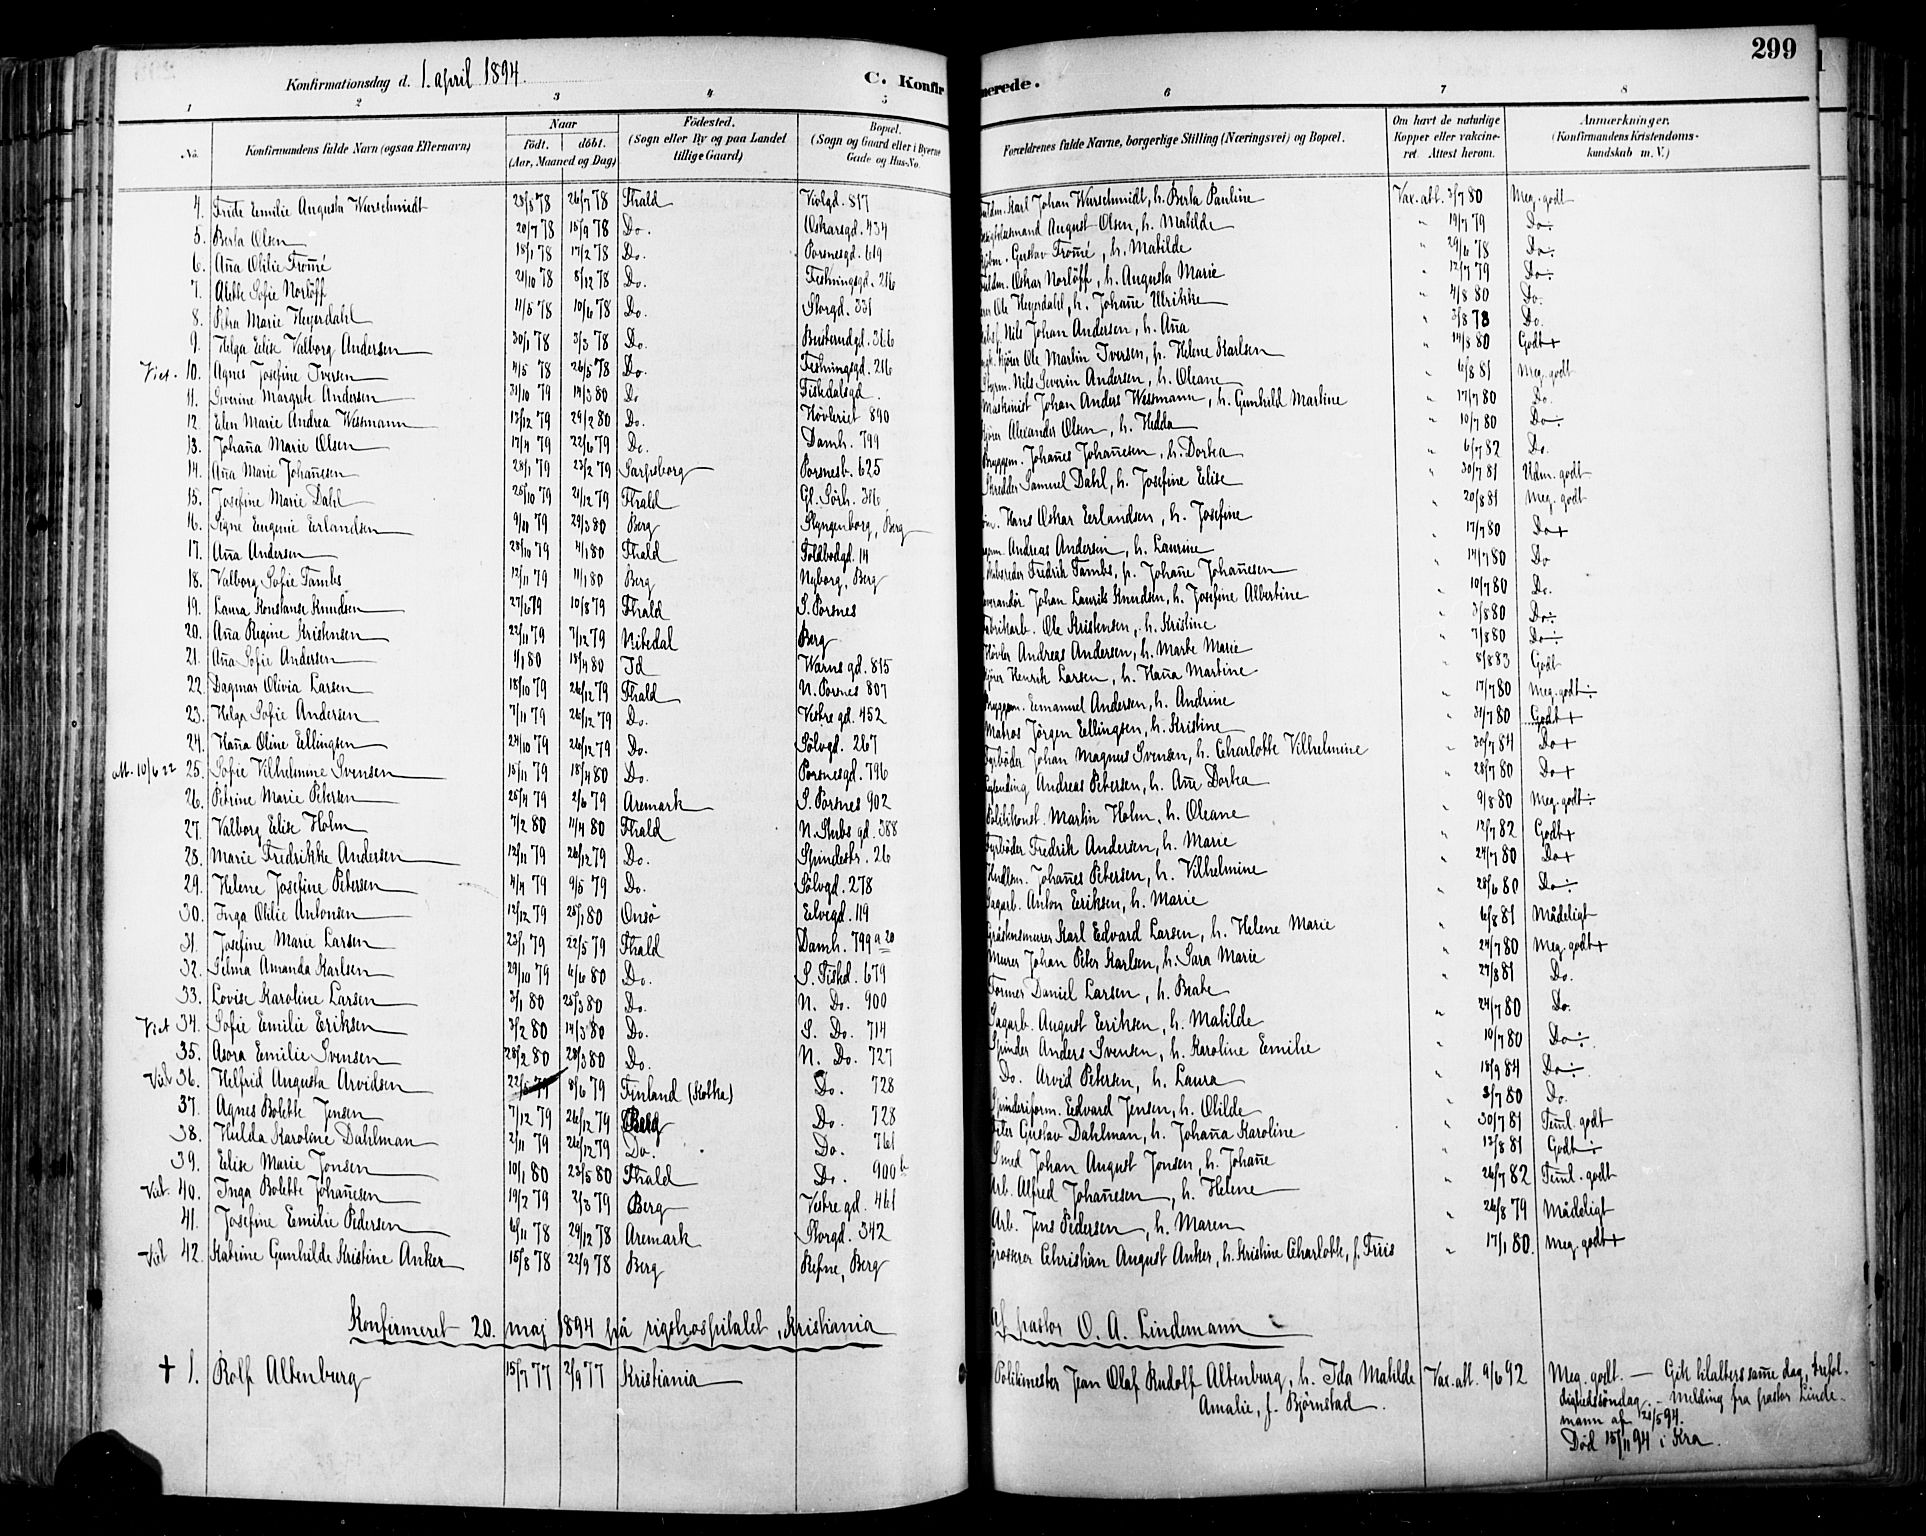 299
Konfirmationsdag d. 1. april 1894.
C. Konfirmerede.
1 2 3 4 5 6 7 8
No. Konfirmandens fulde Navn (ogsaa Efternavn) Naar født. døbt. (Aar, Maaned og Dag) Fødested. (Sogn eller By og paa Landet tillige Gaard) Bopæl. (Sogn og Gaard eller i Byerne Gade og Hus-No. Forældrenes fulde Navne, borgerlige Stilling (Næringsvei) og Bopæl. Om havt de naturlige Kopper eller vakcineret. Attest herom. Anmærkninger. (Konfirmandens Kristendomskundskab m. V.)
4. Frida Emilie Augusta Warschmidt 23/3 78 26/7 78 Fhald Violgd. 817 Karl Johan Warschmidt, h. Berta Pauline Vax. att. 3/7 80 Meg. godt
5. Berta Olsen 20/7 78 15/9 78 Do. Oskarsgd. 434 August Olsen, h. Matilde " 19/7 79 Do
6. Aña Otilie Tromé 18/1 78 17/2 78 Do. Porsnesgd. 619 Gustav Tromé, h. Matilde " 29/6 78 Do
7. Alette Sofie Norløff 21/10 78 8/12 78 Do. Festningsgd. 216 Oskar Norløff, h. Augusta Marie " 12/7 79 Do
8. Petra Marie Heyerdahl 11/5 78 10/6 78 Do. Storgd. 331 Ole Heyerdahl, h. Johañe Ulrikke " 4/8 80 Do.
9. Helga Elise Valborg Andersen 30/1 78 3/3 78 Do. Busterudgd. 366 Nils Johan Andersen, h. Aña " 3/8 78 Do.
Vict. 10. Agnes Josefine Iversen 4/5 78 26/5 78 Do. Festningsgd. 216 Ole Martin Iversen, h. Helene Karlsen " 14/8 80 Godt+
11. Severine Margrete Andersen 31/10 79 14/3 80 Do Fiskdalsgd. Nils Severin Andersen, h. Oleane " 6/8 81 Meg. godt
12. Elen Marie Andrea Wessmann 13/12 79 29/2 80 Do. Høvleriet 890 Maskinist Johan Anders Wessmann, h. Gunhild Martine " 17/7 80 Do.
13. Johaña Marie Olsen 17/4 79 22/6 79 Do. Damh. 799 Alexander Olsen, h. Hedda " 10/7 80 Do
14. Aña Marie Johañesen 28/1 79 23/2 79 Sarpsborg Porsnesb. 625 Bryggem. Johañes Johañesen, h. Dortea " 6/7 82 Do.
15. Josefine Marie Dahl 25/10 79 21/12 79 Fhald Gl. Sørh. 316 Skredder Samuel Dahl, h. Josefine Elise " 30/7 81 Udm. godt
16. Signe Eugenie Erlandsen 9/11 79 29/3 80 Berg Slyngenborg, Berg Hans Oskar Erlandsen, h. Josefine " 20/8 81 Meg. godt
17. Aña Andersen 28/10 79 4/1 80 Fhald Toldbodgd. 14 Andreas Andersen, h. Laurine " 17/7 80 Do+
18. Valborg Sofie Tambs 12/11 79 11/1 80 Berg Nyborg, Berg Fredrik Tambs, h. Johañe Johañesen " 14/7 80 Do
19. Laura Konstanse Knudsen 27/6 79 10/8 79 Fhald S. Porsnes Johan Laurits Knudsen, h. Josefine Albertine " 10/7 80 Do.
20. Aña Regine Kristensen 22/11 79 7/12 79 Nitedal Berg Fabrikarb. Ole Kristensen, h. Kristine " 3/8 80 Do
21. Aña Sofie Andersen 1/1 80 18/4 80 Id Warns gd. 815 Høvler Andreas Andersen, h. Marte Marie " 7/8 80 Do
22. Dagmar Olivia Larsen 18/10 79 26/12 79 Fhald N. Porsnes 807 Henrik Larsen, h. Haña Martine " 8/8 83 Godt
23. Helga Sofie Andersen 7/11 79 26/12 79 Do. Vestre gd. 452 Bryggem. Emanuel Andersen, h. Andrine " 17/7 80 Meg. godt
24. Haña Oline Ellingsen 24/10 79 26/12 79 Do. Sølvgd. 267 Matros Jörgen Ellingsen, h. Kristine " 31/7 80 Godt+
M. 10/6 22 25. Sofie Vilhelmine Svensen 15/11 79 18/4 80 Do. Porsnesgd. 796 Fyrbøder Johan Magnus Svensen, h. Charlotte Vilhelmine " 30/7 84 Do+
26. Petrine Marie Petersen 25/4 79 2/6 79 Aremark S. Porsnes 902 Andreas Petersen, h. Añe Dortea " 28/7 80 Do+
27. Valborg Elise Holm 7/2 80 11/4 80 Fhald N. Stubs gd. 388 Politikonst. Martin Holm, h. Oleane " 9/8 80 Meg. godt
28. Marie Fredrikke Andersen 12/11 79 26/12 79 Do. Spindestr. 26 Fyrbøder Fredrik Andersen, h. Marie " 12/7 82 Godt+
29. Helene Josefine Petersen 4/4 79 9/5 79 Do. Sølvgd. 278 Johañes Petersen, h. Vilhelmine " 24/7 80 Do+
30. Inga Otilie Antonsen 12/12 79 25/1 80 Onsø Elvegd. 119 Sagarb. Anton Eriksen, h. Marie " 28/6 80 Do
31. Josefine Marie Larsen 23/1 79 22/5 79 Fhald Damh. 799 a 20 Gråstensmurer Karl Edvard Larsen, h. Helene Marie " 6/8 81 Mådeligt
32. Selma Amanda Karlsen 29/10 79 6/6 80 Do. S. Fiskd. 679 Murer Johan Peter Karlsen, h. Sara Marie " 24/7 80 Meg. godt+
33. Lovise Karoline Larsen 3/1 80 25/3 80 Do. N. Do. 900 Former Daniel Larsen, h. Beate " 27/8 81 Do.
Vict 34. Sofie Emilie Eriksen 3/2 80 14/3 80 Do. S. Do. 714 Sagarb. August Eriksen, h. Matilde " 24/7 80 Do.
35. Asora Emilie Svensen 28/2 80 28/3 80 Do. N. Do. 727 Spinder Anders Svensen, h. Karoline Emilie " 10/7 80 Do
Vict 36. Helfrid Augusta Arvidsen 22/5 79 8/6 79 Finland (Kotka) Do. 728 Do. Arvid Petersen, h. Laura " 18/9 84 Do
37. Agnes Bolette Jensen 7/12 79 26/12 79 Berg Do. 728 Spinderiform. Edvard Jensen, h. Otilde " 3/7 80 Do.
38. Hulda Karoline Dahlman 2/11 79 26/12 79 Do. Do. 761 Gustav Dahlman, h. Johaña Karoline " 30/7 81 Teml. godt
39. Elise Marie Jonsen 10/1 80 23/5 80 Fhald Do. 900 b Smed Johan August Jonsen, h. Johañe " 12/8 81 Godt
Vict. 40. Inga Bolette Johañesen 19/2 79 2/3 79 Berg Vestre gd. 461 Arb. Alfred Johañesen, h. Helene " 26/7 82 Teml. godt
41. Josefine Emilie Pedersen 6/11 78 29/12 78 Aremark Storgd. 342 Arb. Jens Pedersen, h. Maren " 26/8 79 Mådeligt
Vict 42. Katrine Gunhilde Kristine Anker 15/8 78 22/9 78 Berg Refne, Berg Grosserer Christian August Anker, h. Kristine Charlotte, f. Friis " 17/1 80. Meg. godt+
Konfirmeret 20. maj 1894 på rigshospitalet, Kristiania af pastor O. A. Lindemann
+ 1. Rolf Altenburg 15/7 77 2/9 77 Kristiania Politimester Jean Olaf Rudolf Altenburg, h. Ida Matilde Vax. att. 9/6 92 Meg. godt. — Gik til alters same dag, trefol-
Amalie, f. Bjørnstad dighedssöndag. — Melding fra pastor Linde-
mann af 21/5 94.
Død 15/11 94 i Kra.